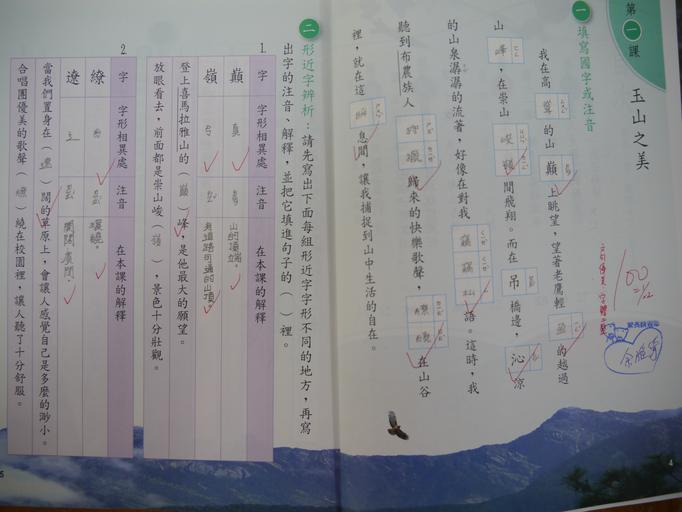 第一課
玉山之美
一 填寫國字或注音
我在高聳的山巔上眺望，望著老鷹輕盈的越過
山峰，在崇山峻嶺間飛翔。而在吊橋邊，沁涼
的山泉潺潺的流著，好像在對我竊竊私語。這時，我
聽到布農族人狩獵歸來的快樂歌聲，繚繞在山谷
裡，就在這瞬息間，讓我捕捉到山中生活的自在。
100
4
二 形近字辨析：請先寫出下面每組形近字字形不同的地方，再寫
出字的注音、解釋，並把它填進句子的（ ）裡。
1.
字 字形相異處 注音 在本課的解釋
巔 真 山的頂端。
嶺 有道路可通的山頂。
登上喜馬拉雅山的（巔）峰，是他最大的願望。
放眼看去，前面都是崇山峻（嶺），景色十分壯觀。
2.
字 字形相異處 注音 在本課的解釋
繚 環繞。
遼 開闊、廣闊。
當我們置身在（遼）闊的草原上，會讓人感覺自己是多麼的渺小。
合唱團優美的歌聲（繚）繞在校園裡，讓人聽了十分舒服。
5